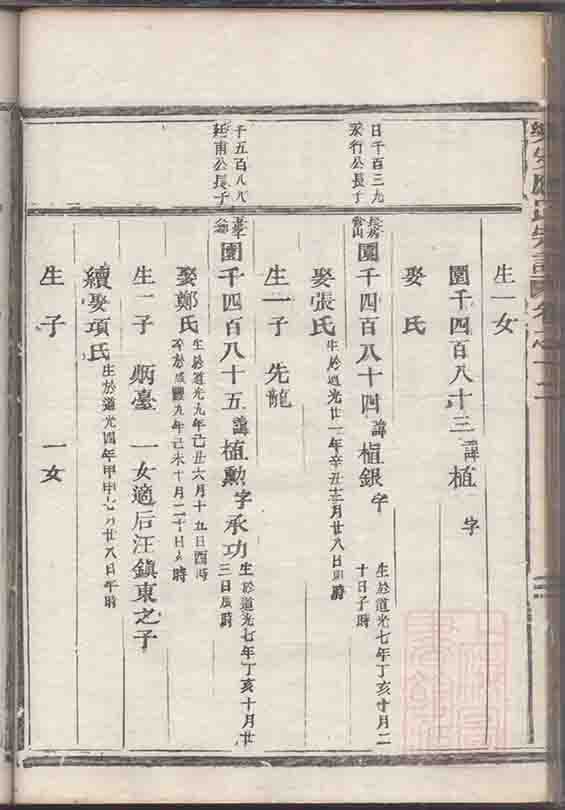 生一女
園千四百八十三 諱植 字
娶 氏
日千百三九
永行公長子
園千四百八十四 諱植銀 字
生於道光七年丁亥十月二
十日子時
娶張氏
生一子 先龍
千五百八八
廷甫公長子
園千四百八十五 諱植勲 字承功
生於道光七年丁亥十月廿
三日辰時
娶鄭氏
生於道光九年己丑六月十五日酉時
卒於咸豐九年己未十月二十日 時
生一子 炳臺 一女適后汪鎭東之子
續娶項氏
生於道光四年甲申七月廿八日午時
生 子 一女